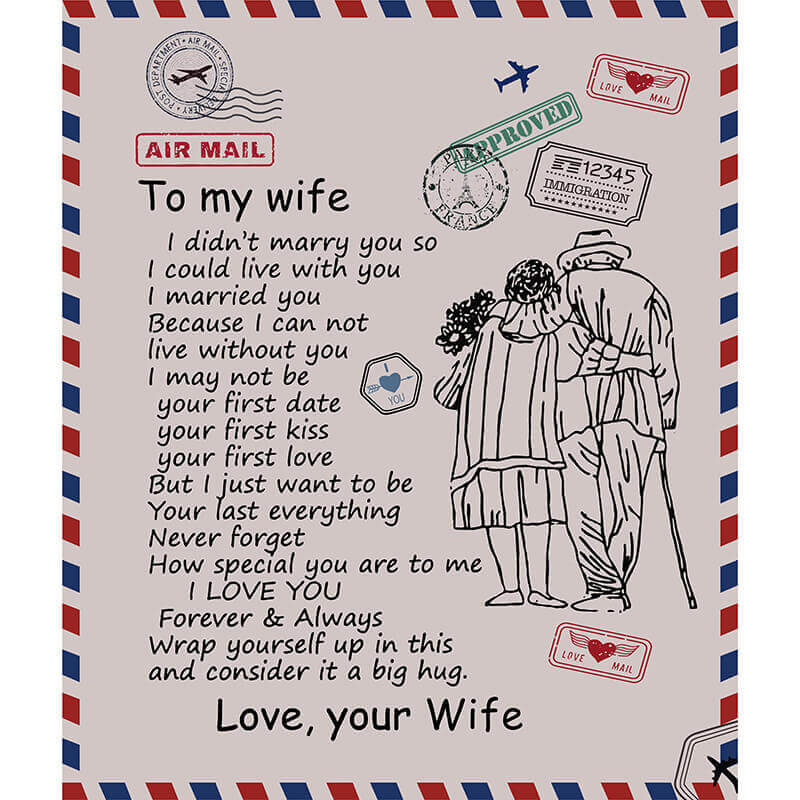 POST DEPARTMENT • AIR MAIL • SPECIAL DELIVERY
AIR MAIL
LOVE MAIL
APPROVED
FRANCE
12345
IMMIGRATION
To my wife
I didn't marry you so
I could live with you
I married you
Because I can not
live without you
I may not be
your first date
your first kiss
your first love
But I just want to be
Your last everything
Never forget
How special you are to me
I LOVE YOU
Forever & Always
Wrap yourself up in this
and consider it a big hug.
Love, your Wife
I
YOU
LOVE MAIL